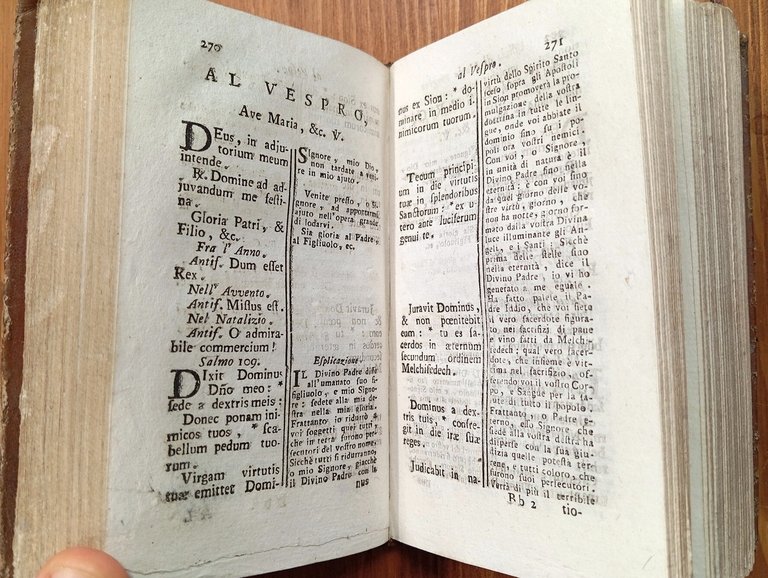 270
AL VESPRO,
Ave Maria, &c. V.
DEus, in adju-
torium meum
intende.
R. Domine ad ad-
juvandum me festi-
na.
Gloria Patri, &
Filio, &c.
Fra l'Anno.
Antif. Dum esset
Rex.
Nell' Avvento.
Antif. Missus est.
Nel Natalizio.
Antif. O admira-
bile commercium!
Salmo 109.
DIxit Dominus
Dño meo: *
sede a dextris meis:
Donec ponam ini-
micos tuos, * sca-
bellum pedum tuo-
rum.
Virgam virtutis
tuæ emittet Domi-
Signore, mio Dio,
non tardate a veni-
re in mio ajuto.
Venite presto, o Si-
gnore, ad apportarmi
ajuto nell'opera grande
di lodarvi.
Sia gloria al Padre,
al Figliuolo, ec.
Esplicazione.
IL Divino Padre disse
all'umanato suo fi-
gliuolo, e mio Signo-
re: sedete alla mia de-
stra nella mia gloria.
Frattanto io ridurrò a
voi soggetti quei tutti,
che in terra furono per-
secutori del vostro nome.
Sicchè tutti si ridurranno,
o mio Signore, giacchè
il Divino Padre con la
nus
al Vespro.
271
nus ex Sion: * do-
minare in medio i-
nimicorum tuorum.
Tecum principi-
um in die virtutis
tuæ in splendoribus
Sanctorum: * ex u-
tero ante luciferum
genui te.
Juravit Dominus,
& non pœnitebit
eum: * tu es sa-
cerdos in æternum
secundum ordinem
Melchisedech.
Dominus a dex-
tris tuis, * confre-
git in die iræ suæ
reges.
Judicabit in na-
virtù dello Spirito Santo
sceso sopra gli Apostoli
in Sion promoverà la pro-
mulgazione della vostra
dottrina in tutte le lin-
gue, onde voi abbiate il
dominio fino su i po-
poli ora vostri nemici.
Con voi, o Signore,
in unità di natura è il
Divino Padre fino nella
eternità; è con voi fino
da quel giorno delle vo-
stre virtù, giorno, che
non ha notte, giorno for-
mato dalla vostra Divina
luce illuminante gli An-
geli, e i Santi: Sicchè
prima delle stelle fino
nella eternità, dice il
Divino Padre, io vi ho
generato a me eguale.
Ha fatto palese il Pa-
dre Iddio, che voi siete
il vero sacerdote figura-
to nei sacrifizj di pane
e vino fatti da Melchi-
sedech; qual vero sacer-
dote, che insieme è vit-
tima nel sacrifizio, of-
ferendo voi il vostro Cor-
po, e Sangue per la salu-
te di tutto il popolo.
Frattanto, o Padre e-
terno, esso Signore che
sede alla vostra destra ha
disperse con la sua giu-
dizia quelle potestà ter-
rene, e tutti coloro, che
furono suoi persecutori.
Verrà di più il terribile
Bb 2
tio-